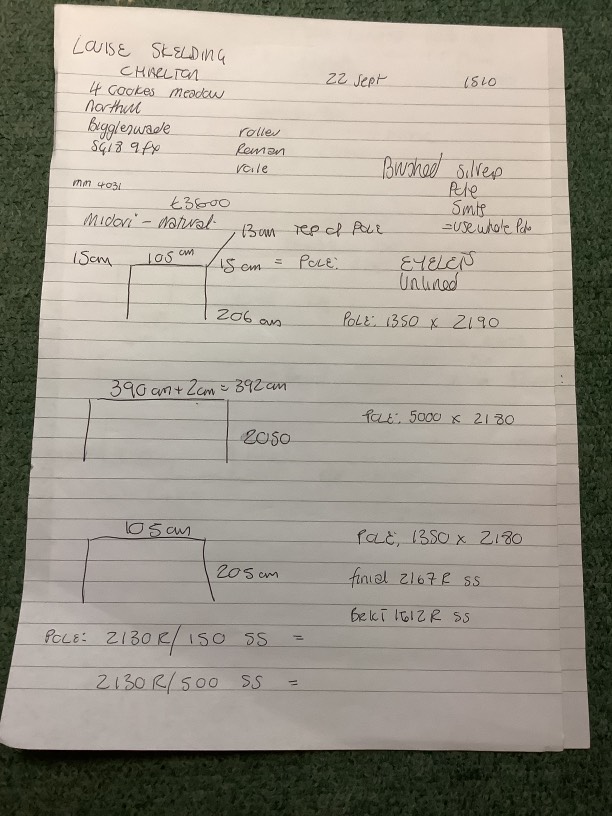 LOUISE SKELDING
CHARLTON
22 Sept 1810
4 Cookes meadow
Northill
Biggleswade
SG18 9fx
roller
Roman
voile
Brushed silver
Pole
5mts
= use whole Pole
mm 4031
£3800
Midori - Natural.
13cm Top of Pole
15cm 105cm 15cm = Pole:
EYELETS
Unlined
206 cm
Pole: 1350 x 2190
390cm + 2cm = 392cm
Pole: 5000 x 2180
2050
105cm
Pole, 1350 x 2180
205cm
finial 2167R SS
1612R SS
Pole: 2130R/150 SS =
2130R/500 SS =